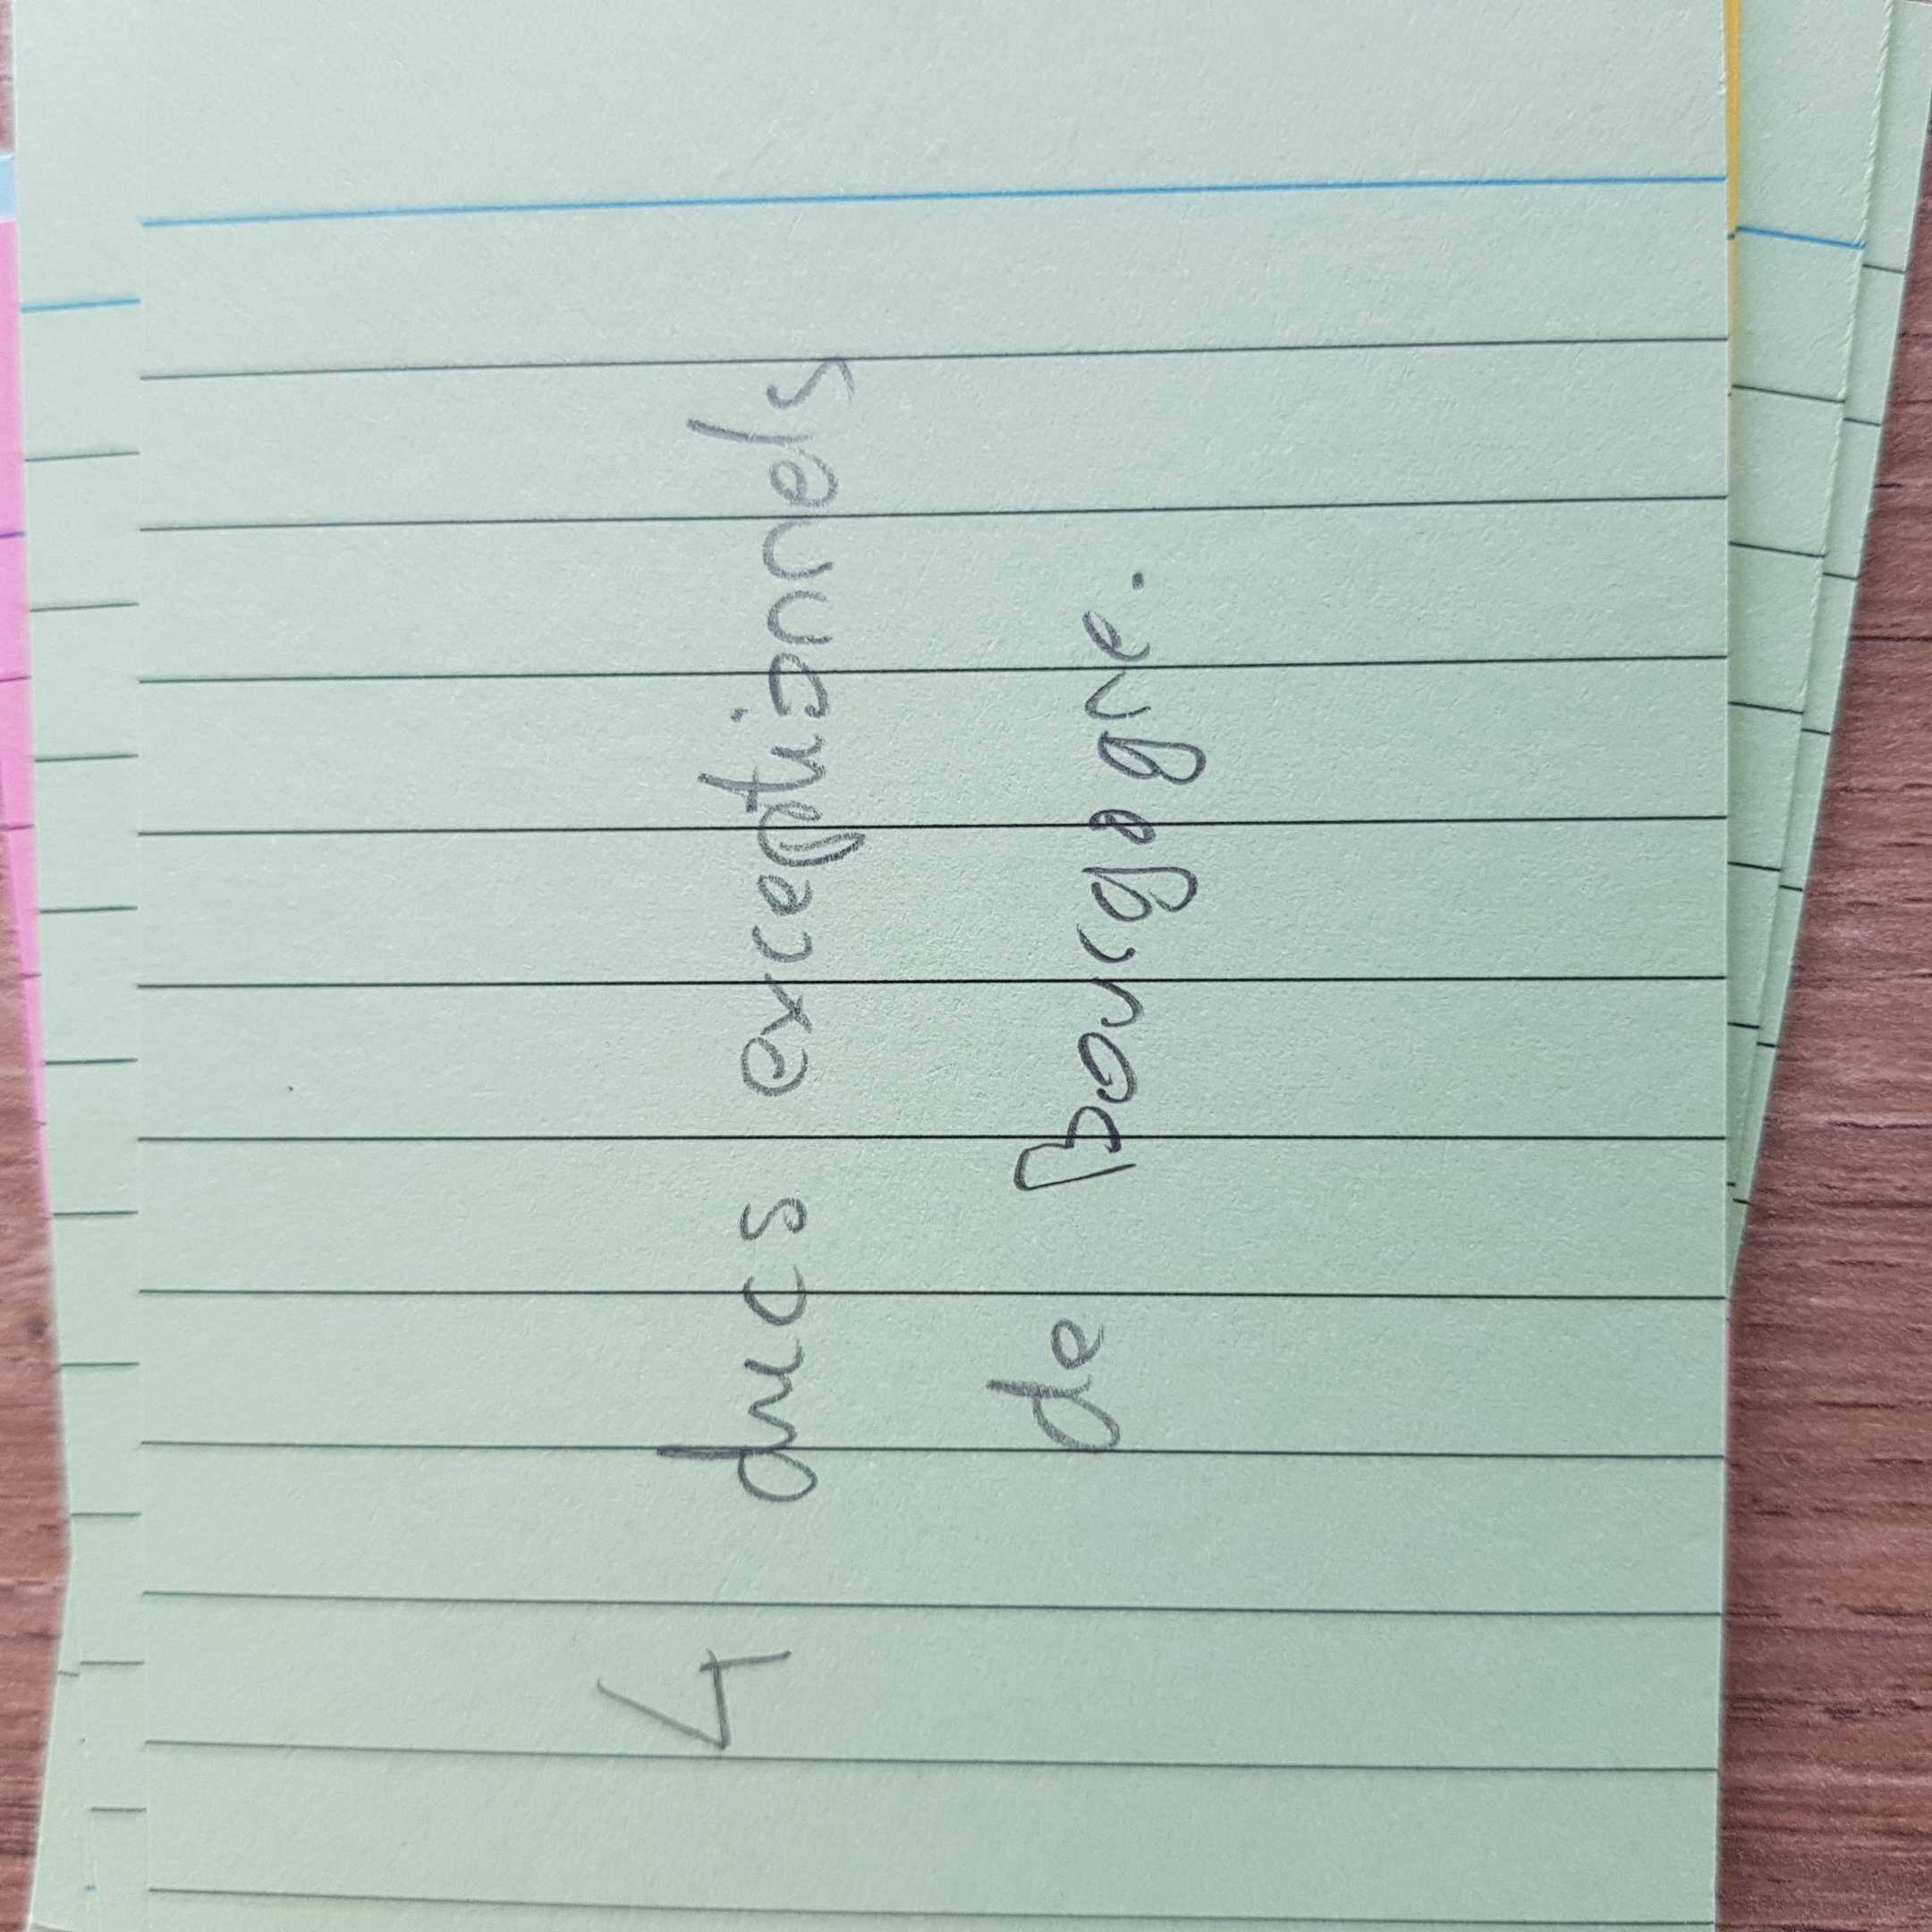 4 ducs exceptionnels
de Bourgogne.